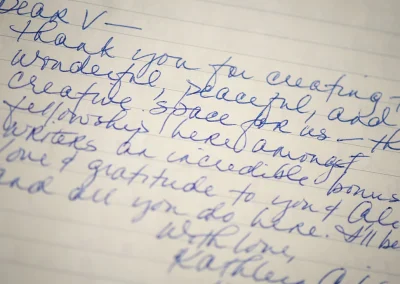 Dear V—
thank you for creating
wonderful, peaceful, and
creative space for us—
fellowship here amongst
writers an incredible bonus
love & gratitude to you &
and all you do here. I'll be
with love,